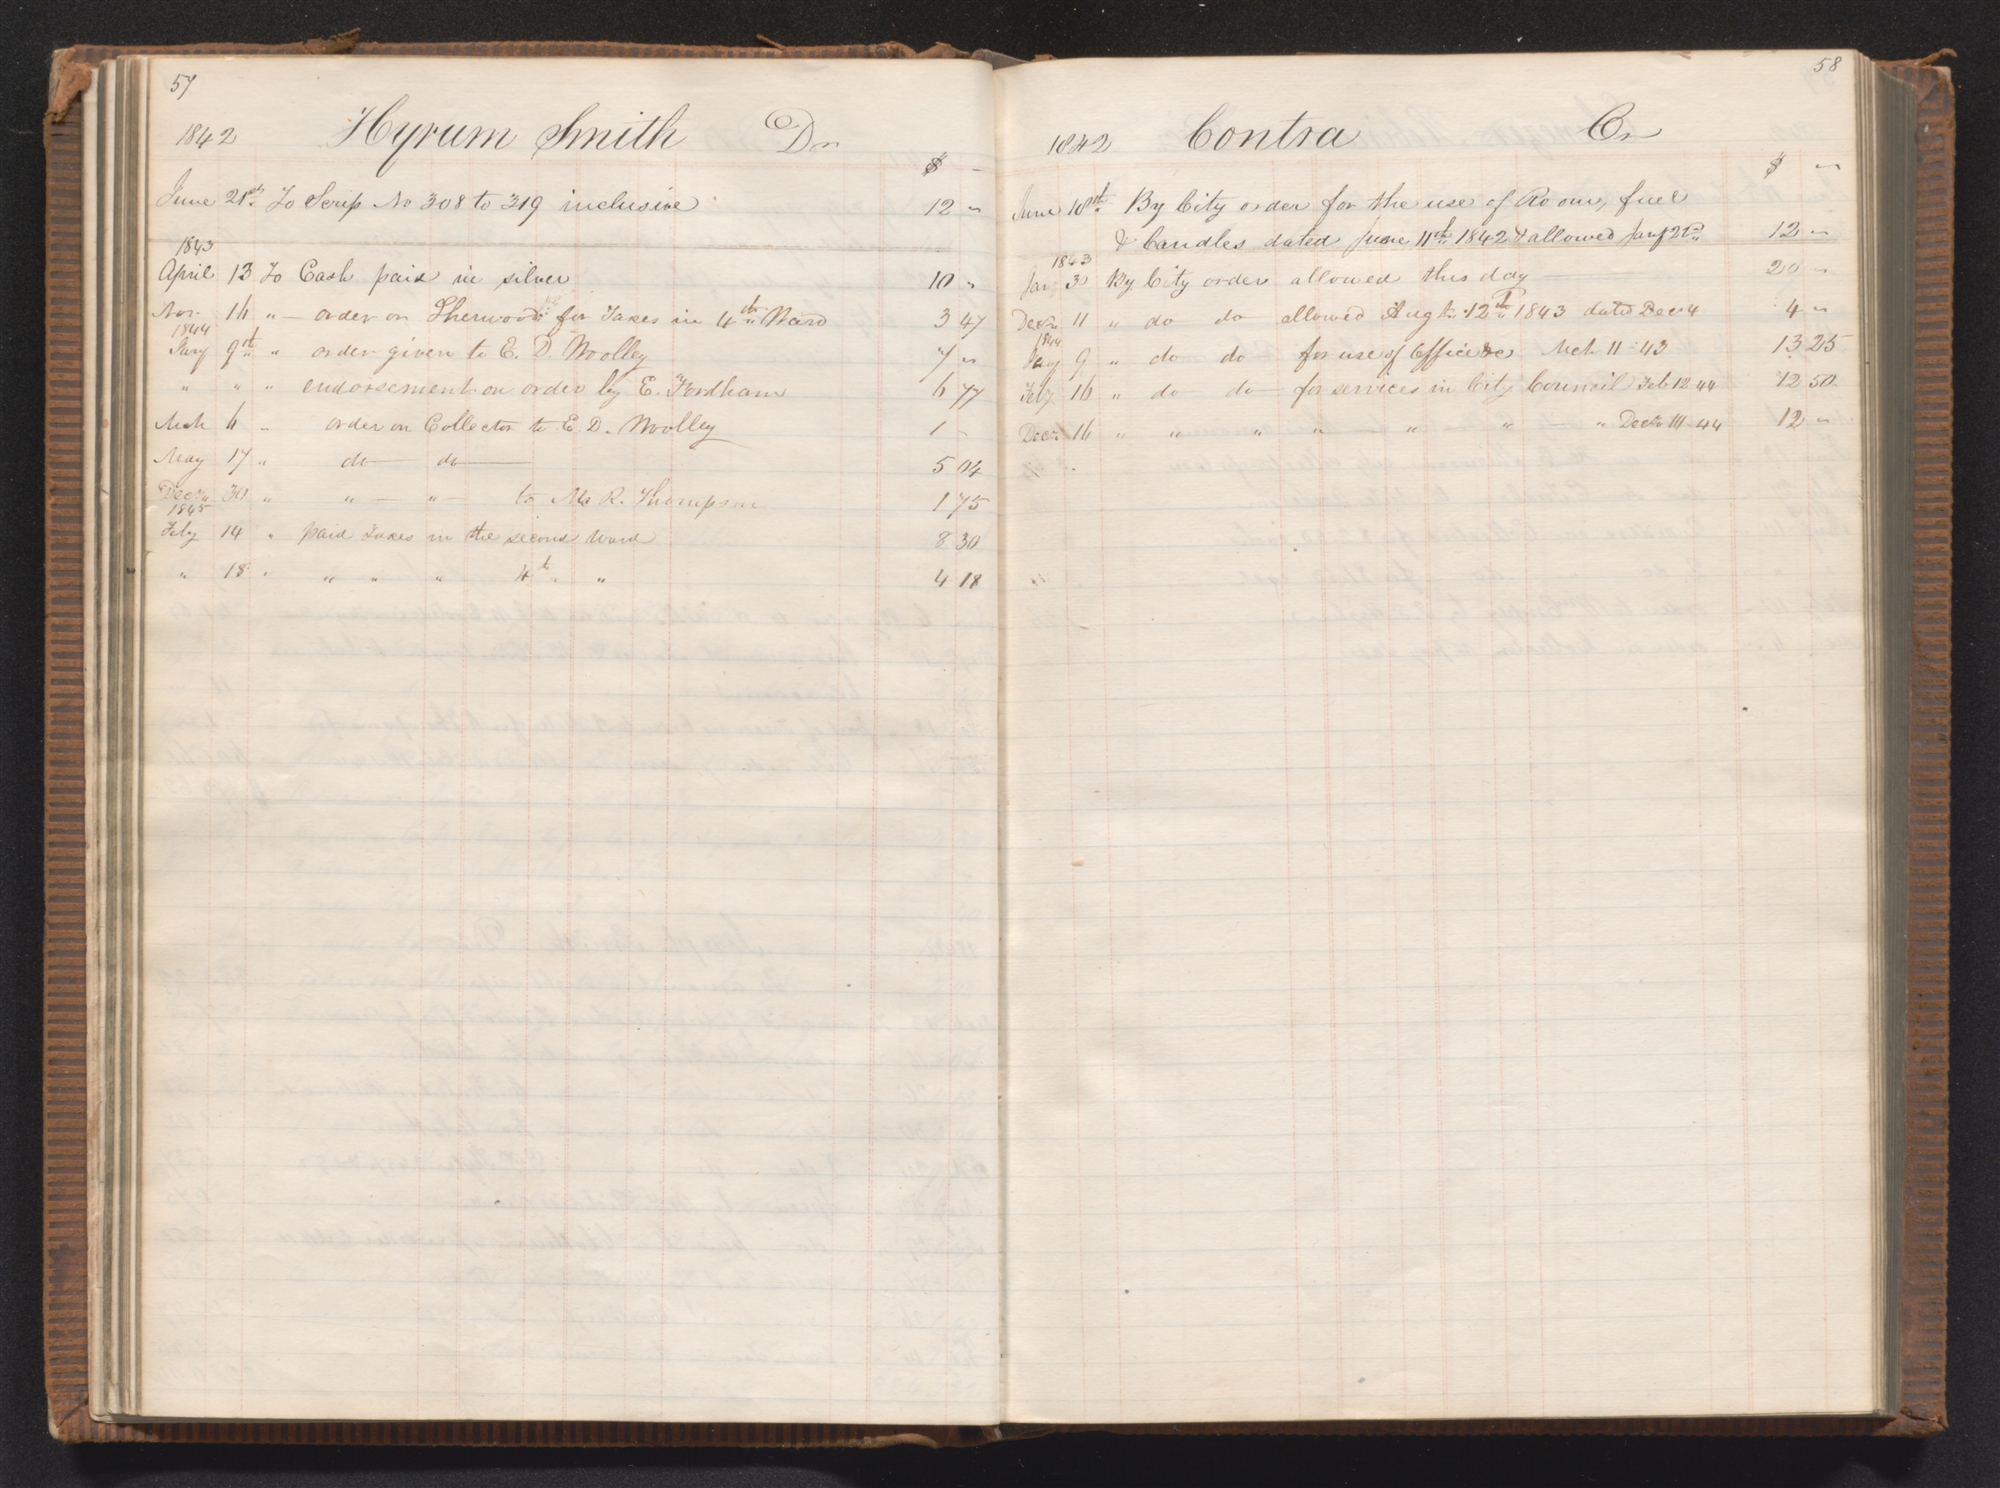 57
1842 Hyrum Smith Dr
$ "
June 21st To Scrip No 308 to 319 inclusive 12 "
1843
April 13 To Cash paid in silver 10 "
Nov. 16 " — order on Sherwood for Taxes in 4th Ward 3 47
1844
Jany 9th " order given to E. D. Woolley 7 "
" " " endorsement on order by E. Fordham 6 77
Mch 6 " order on Collector to E. D. Woolley 1 -
May 17 " do — do — 5 04
Decr 30 " " — " — to M. R. Thompson 1 75
1845
Feby 14 " paid Taxes in the second Ward 8 30
" 18 " " " " 4th " 4 18
58
1842 Contra Cr
$ "
June 10th By City order for the use of Room, fuel
& Candles dated June 11th 1842 & allowed 12 "
1843
Jan 3 By City order allowed this day 20 "
Decr 11 " do do allowed Aug 12th 1843 dated Dec 4 4 "
1844
Jay 9 " do do — for use of Office &c Mch 11 - 43 13 25
Feby 16 " do do — for services in City Council Feb 12 44 12 50
Decr 16 " " " " " " — " Decr 14 - 44 12 "